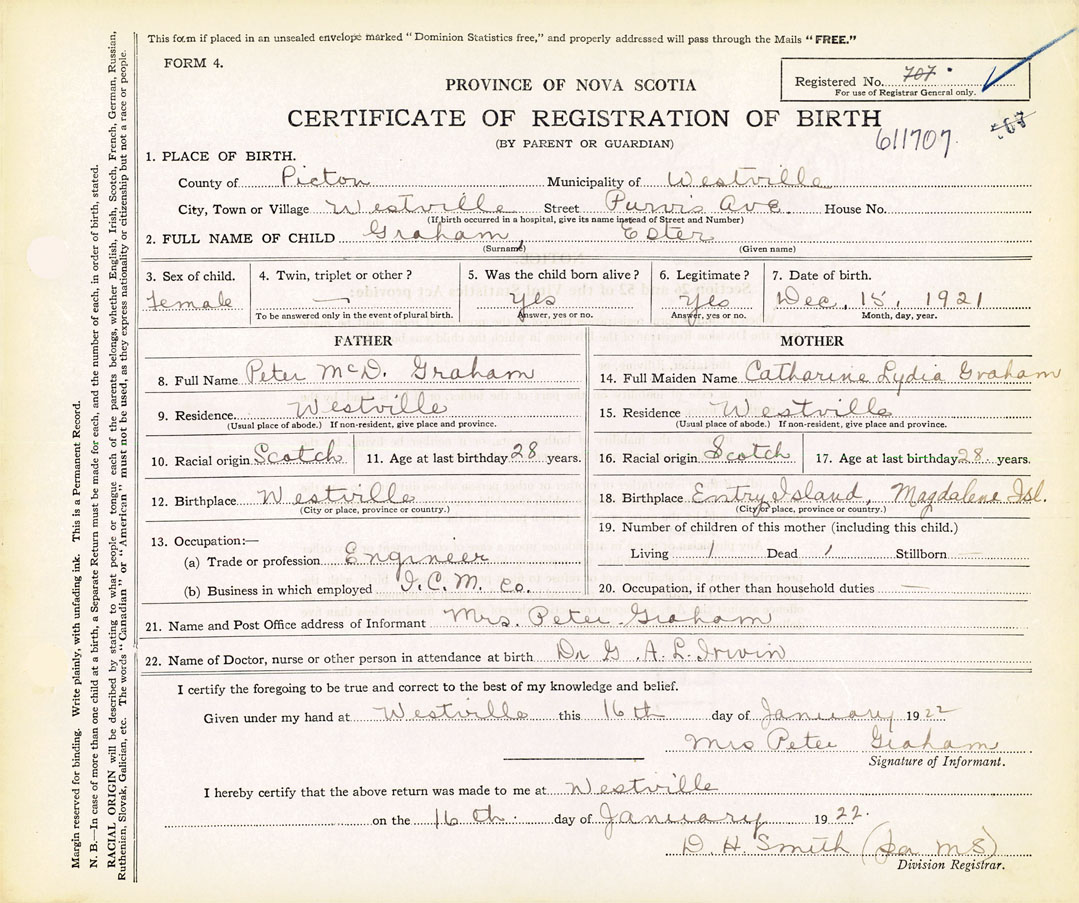 This form if placed in an unsealed envelope marked "Dominion Statistics free," and properly addressed will pass through the Mails "FREE."
FORM 4.
Registered No. 707
For use of Registrar General only.
PROVINCE OF NOVA SCOTIA
CERTIFICATE OF REGISTRATION OF BIRTH
(BY PARENT OR GUARDIAN)
611707
707
1. PLACE OF BIRTH.
County of Picton Municipality of Westville
City, Town or Village Westville Street Purvis Ave. House No.
(If birth occurred in a hospital, give its name instead of Street and Number)
2. FULL NAME OF CHILD Graham, Ester
(Surname) (Given name)
3. Sex of child. 4. Twin, triplet or other? 5. Was the child born alive? 6. Legitimate? 7. Date of birth.
female — Yes Yes Dec. 18, 1921
To be answered only in the event of plural birth. Answer, yes or no. Answer, yes or no. Month, day, year.
FATHER
8. Full Name Peter McD. Graham
9. Residence Westville
(Usual place of abode.) If non-resident, give place and province.
10. Racial origin Scotch 11. Age at last birthday 28 years.
12. Birthplace Westville
(City or place, province or country.)
13. Occupation:—
(a) Trade or profession Engineer
(b) Business in which employed I.C.M. Co.
MOTHER
14. Full Maiden Name Catharine Lydia Graham
15. Residence Westville
(Usual place of abode.) If non-resident, give place and province.
16. Racial origin Scotch 17. Age at last birthday 28 years.
18. Birthplace Entry Island, Magdalene Isl.
(City or place, province or country.)
19. Number of children of this mother (including this child.)
Living 1 Dead 1 Stillborn —
20. Occupation, if other than household duties —
21. Name and Post Office address of Informant Mrs. Peter Graham
22. Name of Doctor, nurse or other person in attendance at birth Dr G. A. L. Irwin
I certify the foregoing to be true and correct to the best of my knowledge and belief.
Given under my hand at Westville this 16th day of January 1922
Mrs Peter Graham
Signature of Informant.
I hereby certify that the above return was made to me at Westville
on the 16th. day of January 1922.
D. H. Smith (per MS)
Division Registrar.
Margin reserved for binding. Write plainly, with unfading ink. This is a Permanent Record.
N. B.—In case of more than one child at a birth, a Separate Return must be made for each, and the number of each, in order of birth, stated.
RACIAL ORIGIN will be described by stating to what people or tongue each of the parents belongs, whether English, Irish, Scotch, French, German, Russian,
Ruthenian, Slovak, Galician, etc. The words "Canadian" or "American" must not be used, as they express nationality or citizenship but not a race or people.